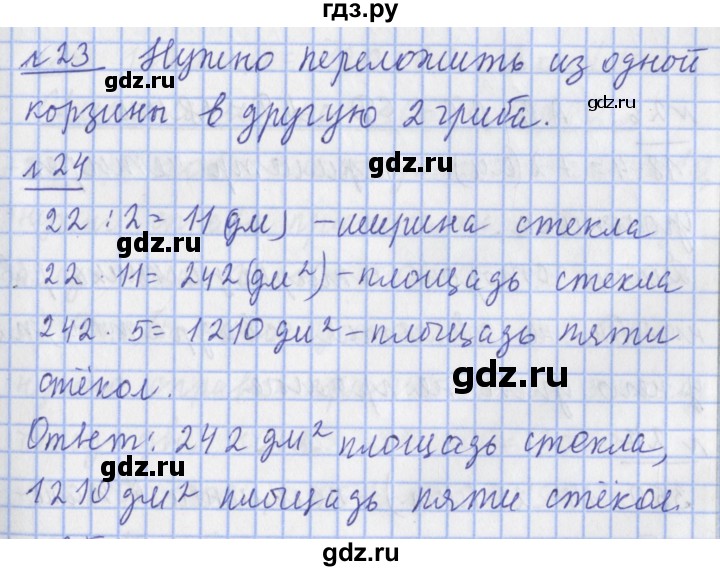 гдз.ру
№23 Нужно переложить из одной
gdz.ru
gdz.ru
корзины в другую 2 гриба.
№24
gdz.ru
22 : 2 = 11 (дм) – ширина стекла
gdz.ru
22 · 11 = 242 (дм²) – площадь стекла
242 · 5 = 1210 дм² – площадь пяти
gdz.ru
стёкол.
gdz.ru
Ответ: 242 дм² площадь стекла,
gdz.ru
1210 дм² площадь пяти стёкол.
gdz.ru